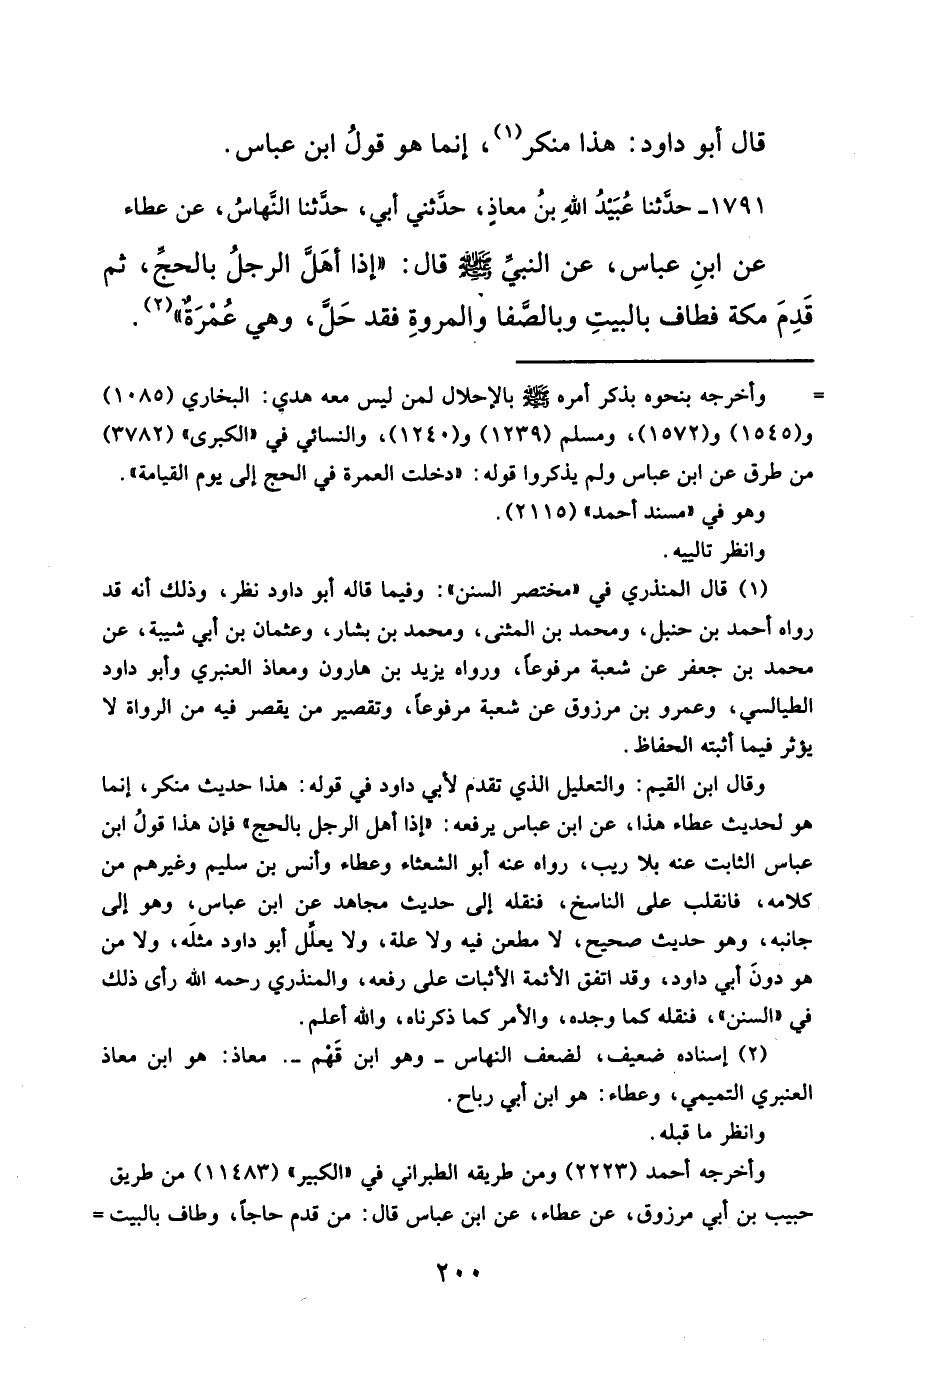 قال أبو داود: هذا منكر(١)، إنما هو قولُ ابن عباس.
١٧٩١ـ حدَّثنا عُبَيْدُ اللهِ بنُ معاذٍ، حدَّثني أبي، حدَّثنا النَّهاسُ، عن عطاء
عن ابنِ عباس، عن النبيِّ ﷺ قال: «إذا أهَلَّ الرجلُ بالحجِّ، ثم
قَدِمَ مكة فطاف بالبيتِ وبالصَّفا والمروةِ فقد حَلَّ، وهي عُمْرَةٌ»(٢).
= وأخرجه بنحوه بذكر أمره ﷺ بالإحلال لمن ليس معه هدي: البخاري (١٠٨٥)
و(١٥٤٥) و(١٥٧٢)، ومسلم (١٢٣٩) و(١٢٤٠)، والنسائي في «الكبرى» (٣٧٨٢)
من طرق عن ابن عباس ولم يذكروا قوله: «دخلت العمرة في الحج إلى يوم القيامة».
وهو في «مسند أحمد» (٢١١٥).
وانظر تالييه.
(١) قال المنذري في «مختصر السنن»: وفيما قاله أبو داود نظر، وذلك أنه قد
رواه أحمد بن حنبل، ومحمد بن المثنى، ومحمد بن بشار، وعثمان بن أبي شيبة، عن
محمد بن جعفر عن شعبة مرفوعاً، ورواه يزيد بن هارون ومعاذ العنبري وأبو داود
الطيالسي، وعمرو بن مرزوق عن شعبة مرفوعاً، وتقصير من يقصر فيه من الرواة لا
يؤثر فيما أثبته الحفاظ.
وقال ابن القيم: والتعليل الذي تقدم لأبي داود في قوله: هذا حديث منكر، إنما
هو لحديث عطاء هذا، عن ابن عباس يرفعه: «إذا أهل الرجل بالحج» فإن هذا قولُ ابن
عباس الثابت عنه بلا ريب، رواه عنه أبو الشعثاء وعطاء وأنس بن سليم وغيرهم من
كلامه، فانقلب على الناسخ، فنقله إلى حديث مجاهد عن ابن عباس، وهو إلى
جانبه، وهو حديث صحيح، لا مطعن فيه ولا علة، ولا يعلِّل أبو داود مثلَه، ولا من
هو دونَ أبي داود، وقد اتفق الأئمة الأثبات على رفعه، والمنذري رحمه الله رأى ذلك
في «السنن»، فنقله كما وجده، والأمر كما ذكرناه، والله أعلم.
(٢) إسناده ضعيف، لضعف النهاس ـ وهو ابن قَهْم ـ. معاذ: هو ابن معاذ
العنبري التميمي، وعطاء: هو ابن أبي رباح.
وانظر ما قبله.
وأخرجه أحمد (٢٢٢٣) ومن طريقه الطبراني في «الكبير» (١١٤٨٣) من طريق
حبيب بن أبي مرزوق، عن عطاء، عن ابن عباس قال: من قدم حاجاً، وطاف بالبيت =
٢٠٠